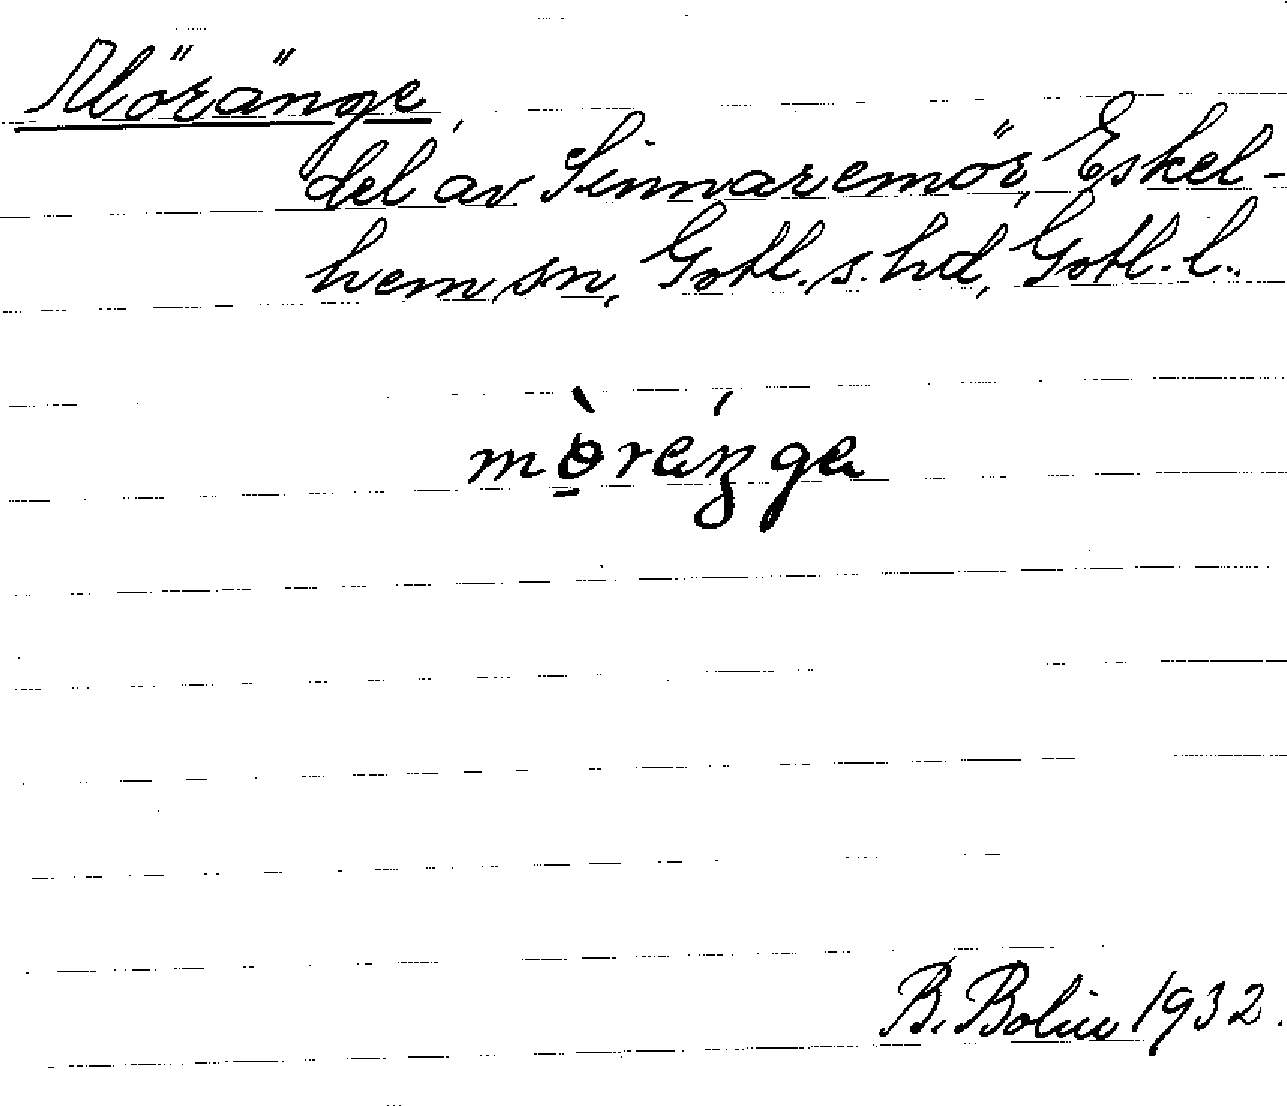 Möränge,
del av Sinnaremör, Eskel-
hem sn, Gotl. s. hd, Gotl. l.
mø̱̀ráŋga
B. Bolin 1932.